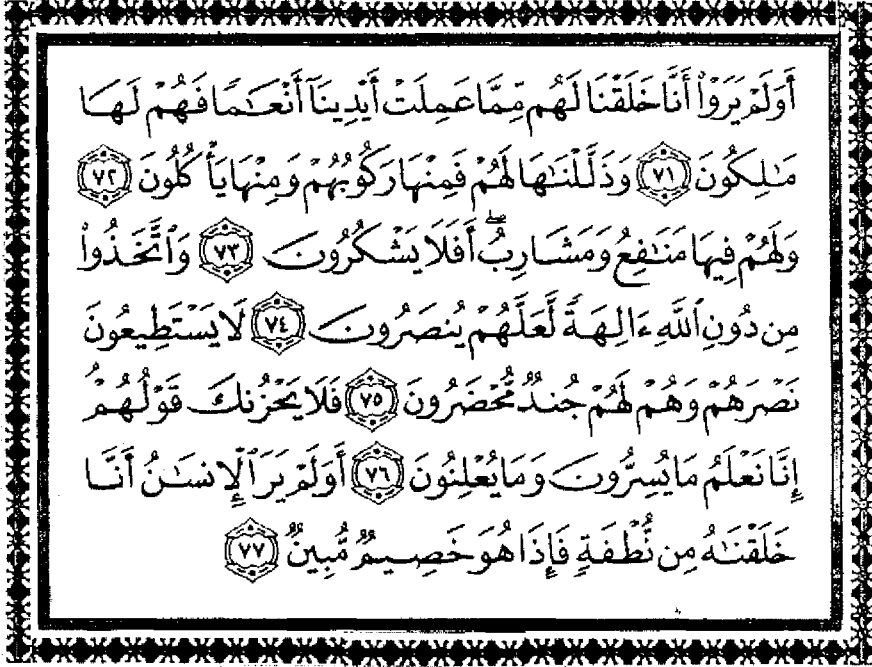 أَوَلَمْ يَرَوْا۟ أَنَّا خَلَقْنَا لَهُم مِّمَّا عَمِلَتْ أَيْدِينَآ أَنْعَٰمًا فَهُمْ لَهَا
مَٰلِكُونَ ٧١ وَذَلَّلْنَٰهَا لَهُمْ فَمِنْهَا رَكُوبُهُمْ وَمِنْهَا يَأْكُلُونَ ٧٢
وَلَهُمْ فِيهَا مَنَٰفِعُ وَمَشَارِبُ ۖ أَفَلَا يَشْكُرُونَ ٧٣ وَٱتَّخَذُوا۟
مِن دُونِ ٱللَّهِ ءَالِهَةً لَّعَلَّهُمْ يُنصَرُونَ ٧٤ لَا يَسْتَطِيعُونَ
نَصْرَهُمْ وَهُمْ لَهُمْ جُندٌ مُّحْضَرُونَ ٧٥ فَلَا يَحْزُنكَ قَوْلُهُمْ
إِنَّا نَعْلَمُ مَا يُسِرُّونَ وَمَا يُعْلِنُونَ ٧٦ أَوَلَمْ يَرَ ٱلْإِنسَٰنُ أَنَّا
خَلَقْنَٰهُ مِن نُّطْفَةٍ فَإِذَا هُوَ خَصِيمٌ مُّبِينٌ ٧٧